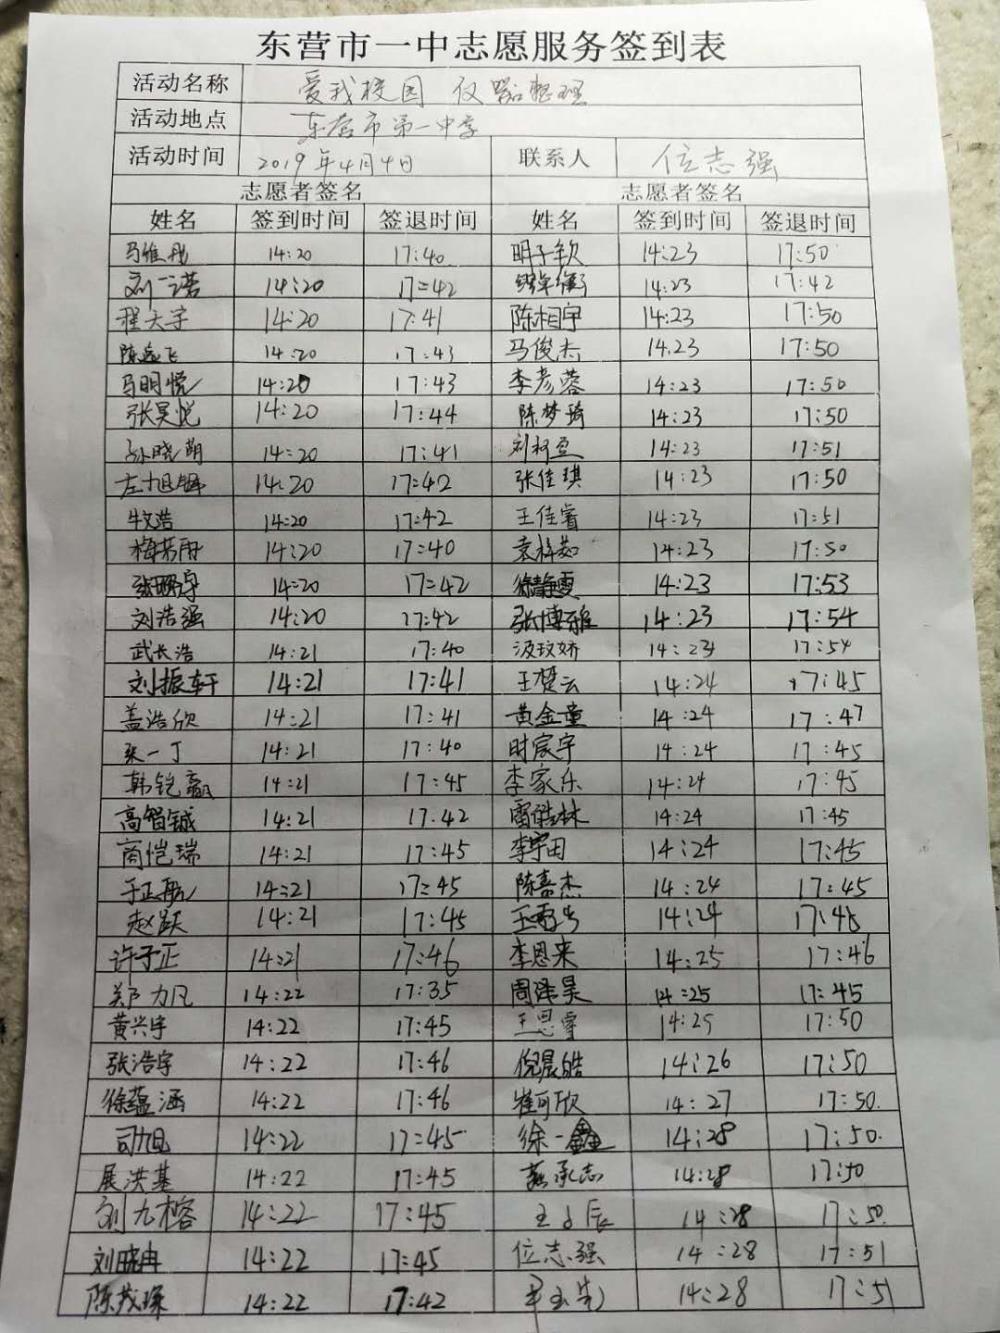 东营市一中志愿服务签到表
活动名称 爱我校园 仪器整理
活动地点 东营市第一中学
活动时间 2019年4月4日 联系人 位志强
志愿者签名 志愿者签名
姓名 签到时间 签退时间 姓名 签到时间 签退时间
14:20 17:40 明子钦 14:23 17:50
刘一诺 14:20 17:42 14:23 17:42
程天宇 14:20 17:41 陈相宇 14:23 17:50
陈逸飞 14:20 17:43 马俊杰 14:23 17:50
马明悦 14:20 17:43 李彦蓉 14:23 17:50
张昊悦 14:20 17:44 陈梦琦 14:23 17:50
孙晓萌 14:20 17:41 14:23 17:51
14:20 17:42 张佳琪 14:23 17:50
牧浩 14:20 17:42 王佳睿 14:23 17:51
梅芳雨 14:20 17:40 14:23 17:50
14:20 17:42 徐静雯 14:23 17:53
刘浩强 14:20 17:42 张博雅 14:23 17:54
武长浩 14:21 17:40 汲玟娇 14:23 17:54
刘振轩 14:21 17:41 王楚云 14:24 17:45
盖浩欣 14:21 17:41 黄金童 14:24 17:47
14:21 17:40 时宸宇 14:24 17:45
韩铠赢 14:21 17:45 李家乐 14:24 17:45
高智铖 14:21 17:42 雷皓林 14:24 17:45
商恺瑞 14:21 17:45 14:24 17:45
14:21 17:45 陈嘉杰 14:24 17:45
赵跃 14:21 17:45 14:24 17:45
许子正 14:21 17:46 李恩来 14:25 17:46
郑力凡 14:22 17:35 周泽昊 14:25 17:45
黄兴宇 14:22 17:45 王思睿 14:25 17:50
张浩宇 14:22 17:46 倪晨皓 14:26 17:50
徐蕴涵 14:22 17:46 崔可欣 14:27 17:50.
司旭 14:22 17:45 徐一鑫 14:28 17:50.
展洪基 14:22 17:45 燕承志 14:28 17:50
刘九榕 14:22 17:45 14:28 17:50.
刘晓冉 14:22 17:45 位志强 14:28 17:51
14:22 17:42 14:28 17:51